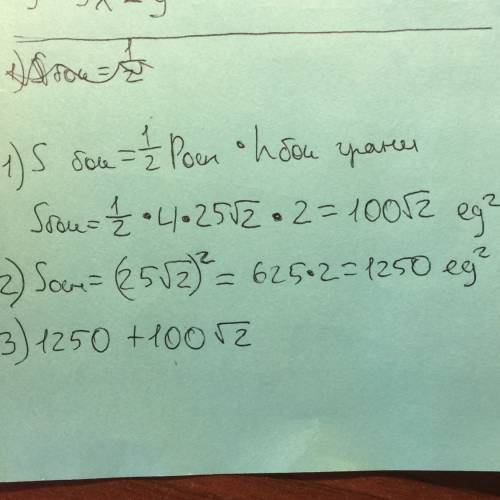 1) Sбок = 1/2
1) S бок = 1/2 Pосн • h бок грани
Sбок = 1/2 • 4 • 25√2 • 2 = 100√2 ед²
2) Sосн = (25√2)² = 625•2 = 1250 ед²
3) 1250 + 100√2